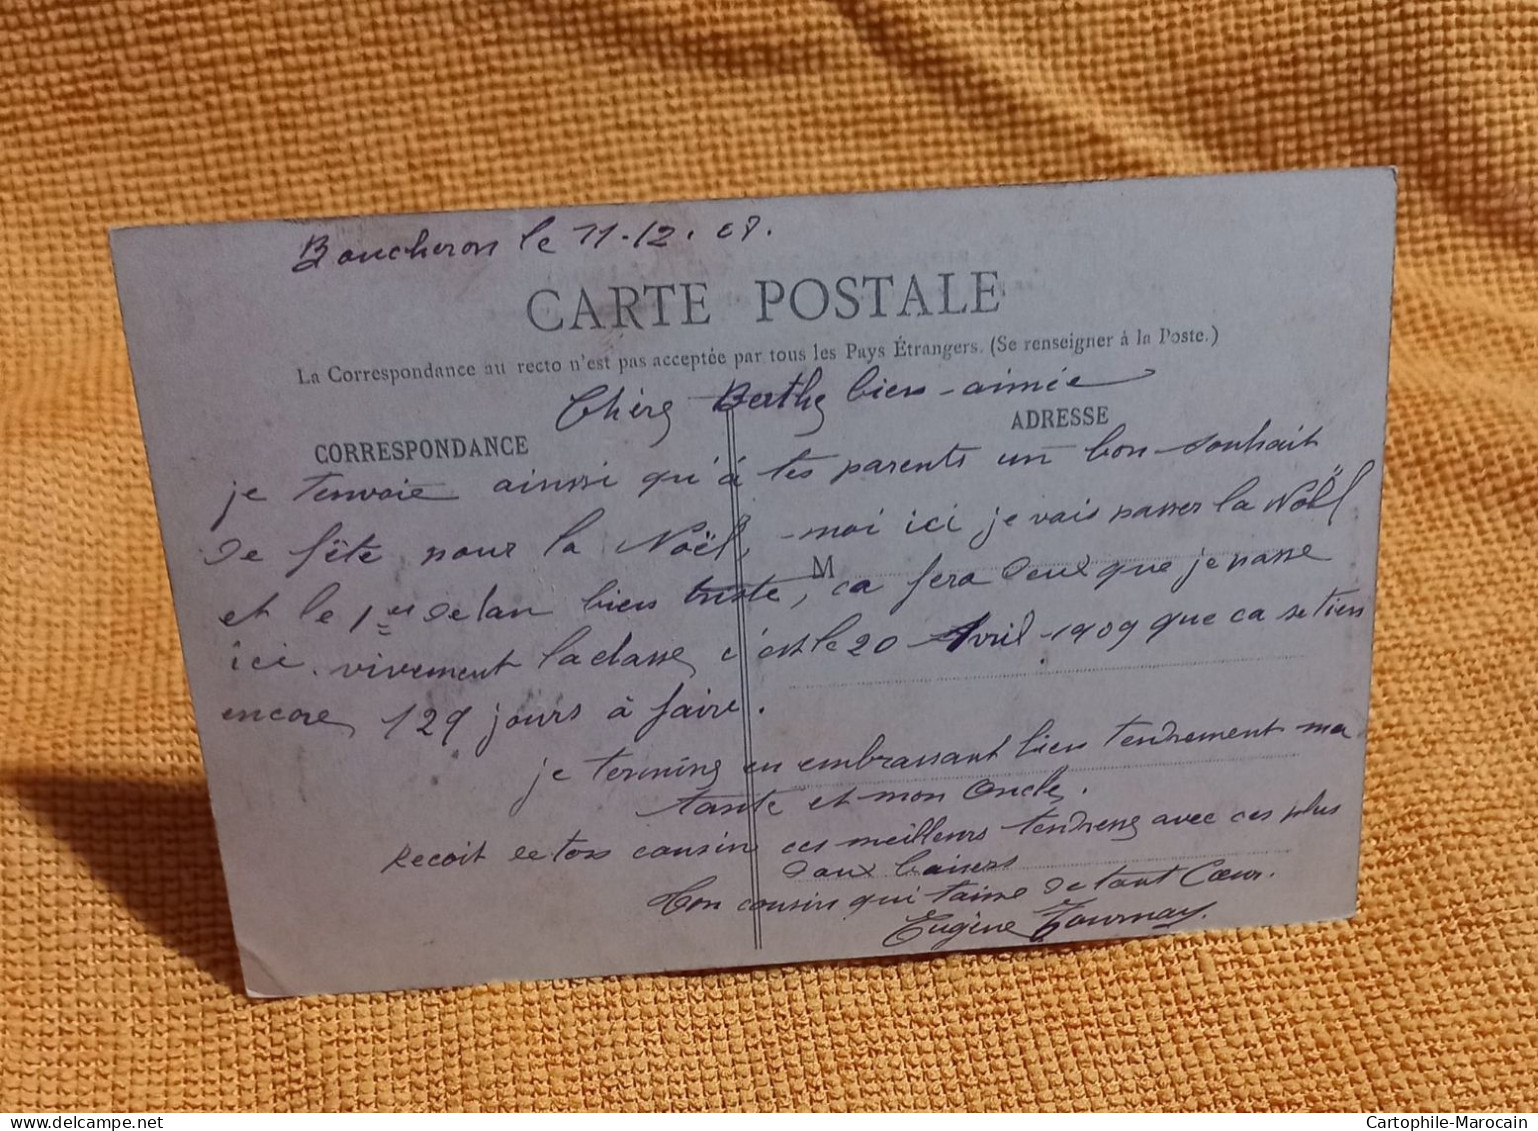 Boucheron le 11-12. 08.
CARTE POSTALE
La Correspondance au recto n'est pas acceptée par tous les Pays Étrangers. (Se renseigner à la Poste.)
Chère Berthe bien-aimée
CORRESPONDANCE
ADRESSE
je t'envoie ainsi qu'à tes parents un bon souhait
de fête pour la Noël, moi ici je vais passer la Noël
M
et le 1er de lan bien triste, ca fera deux que je passe
ici. vivement la classe, c'est le 20 Avril 1909 que ca se tien
encore 129 jours à faire.
je termine en embrassant bien tendrement ma
tante et mon Oncle.
Recoit de ton cousin ces meilleurs tendress avec ces plus
doux baisers
Ton cousin qui t'aime de tout Cœur.
Eugène Tournay.
Cartophile-Marocain